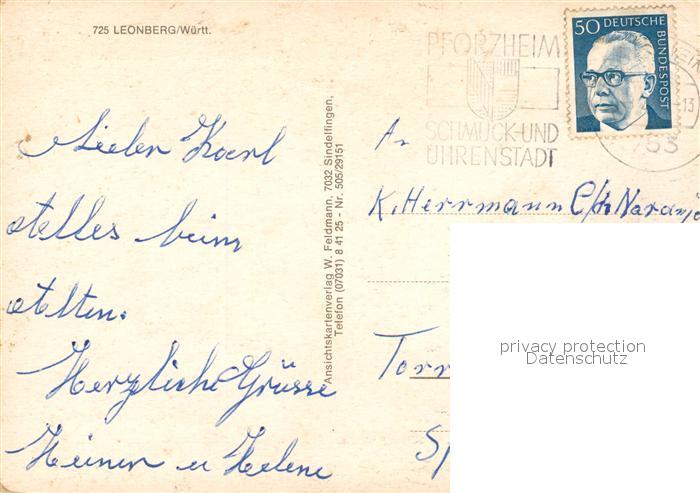 725 LEONBERG/Württ.
PFORZHEIM
SCHMUCK-UND
UHRENSTADT
50 DEUTSCHE
BUNDESPOST
-13
753
Lieber Karl
alles beim
alten.
Herzliche Grüsse
Heiner u Helene
Ansichtskartenverlag W. Feldmann, 7032 Sindelfingen,
Telefon (07031) 8 41 25 - Nr. 505/29151
An
K. Herrmann C/h Naranjo
Torr
Sp
privacy protection
Datenschutz